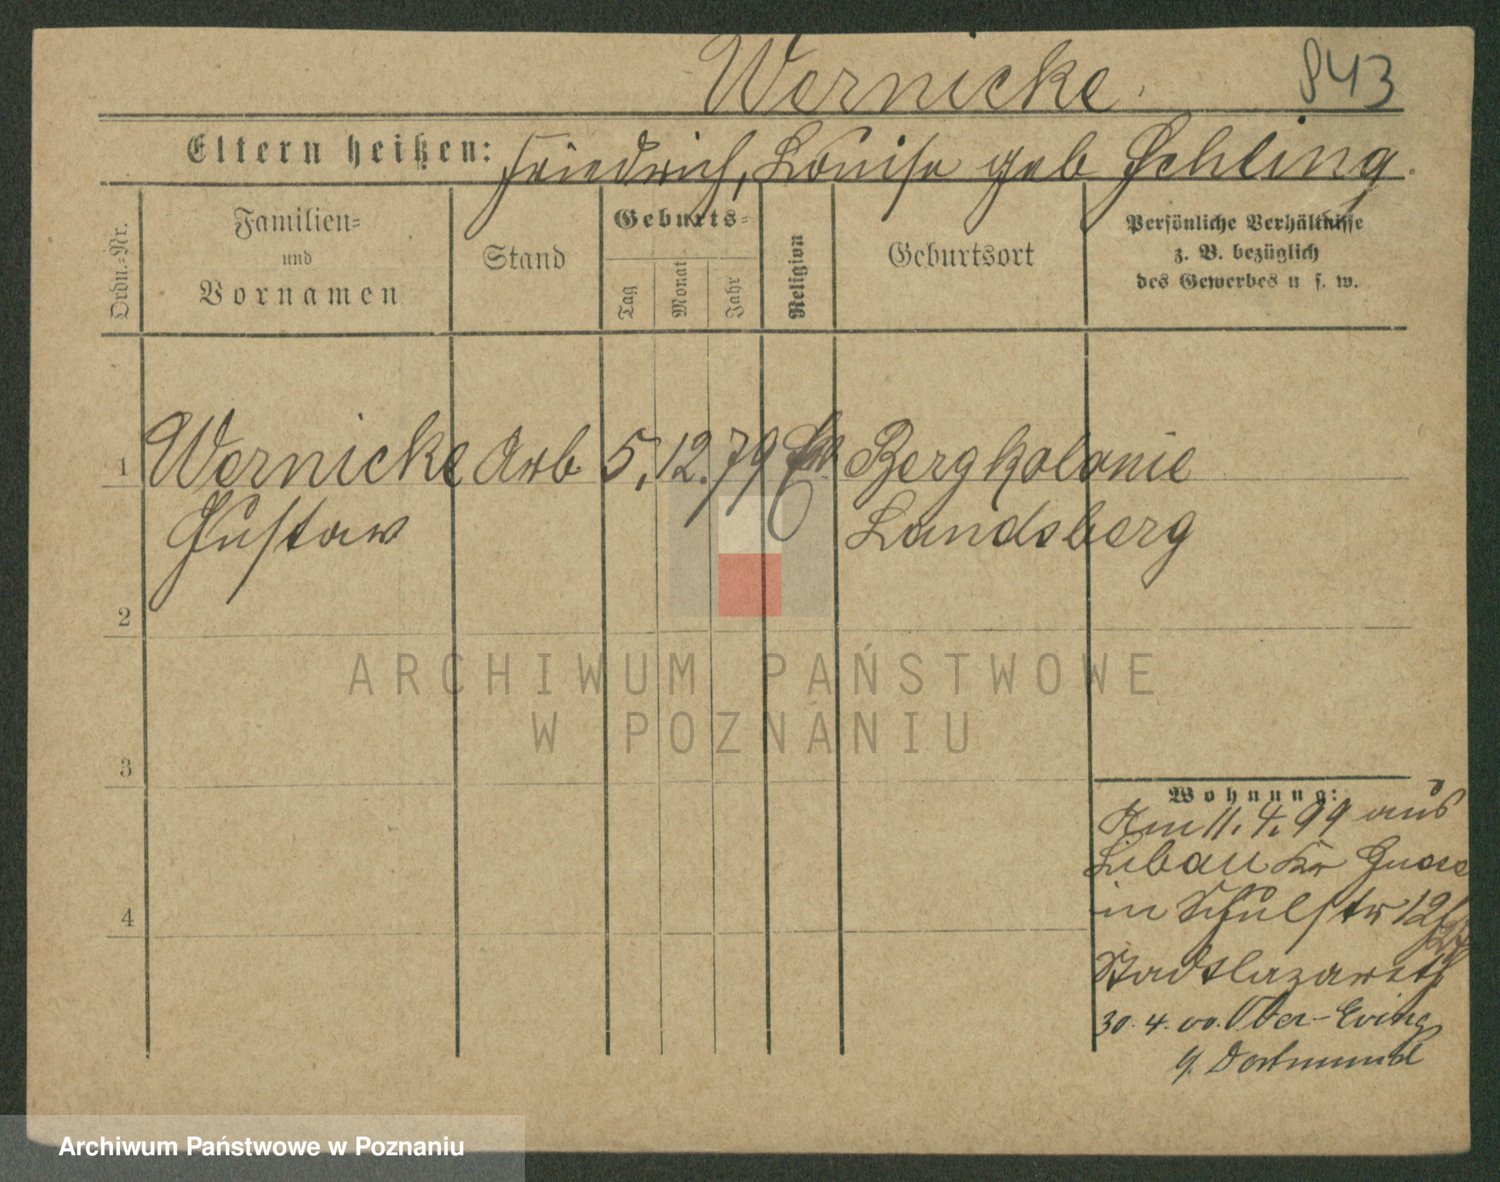 Wernicke.
843
Eltern heißen: Friedrich, Louise geb Schling.
Ordn.-Nr.
Familien-
und
Vornamen
Stand
Geburts-
Tag
Monat
Jahr
Religion
Geburtsort
Persönliche Verhältnisse
z. B. bezüglich
des Gewerbes u. s. w.
1 Wernicke Arb 5. 12. 79 Bergkolonie
Gustav Landsberg
2
ARCHIWUM PAŃSTWOWE
W POZNANIU
3
Wohnung:
11. 4. 99 aus
Libau Kr
in Schulstr 12
Stadtlazareth
30. 4. 00. Ober-Eving
Dortmund
4
Archiwum Państwowe w Poznaniu